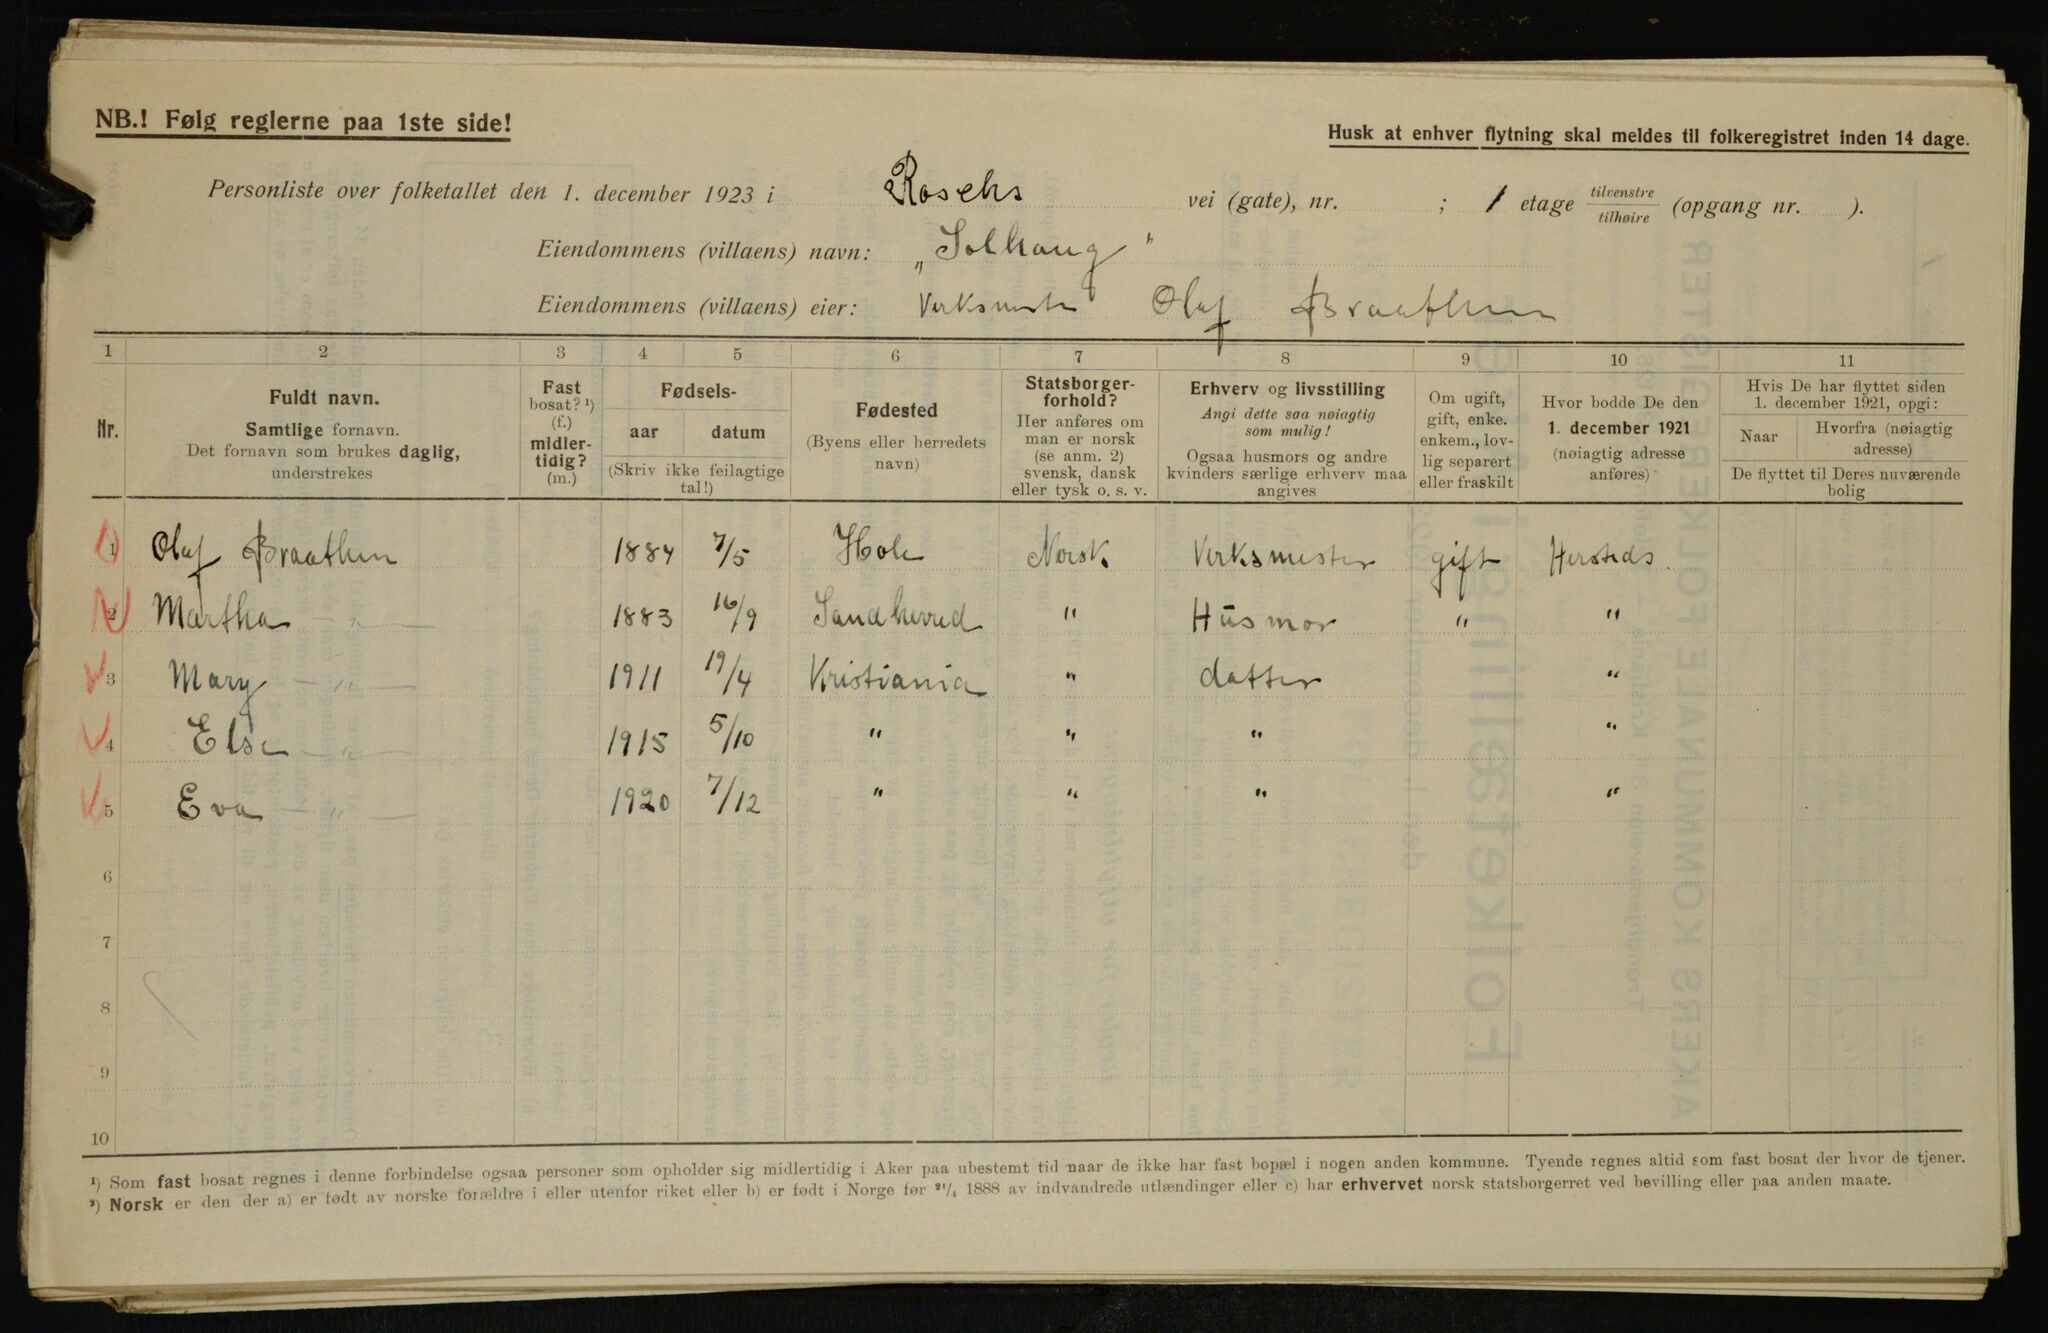 NB.! Følg reglerne paa 1ste side!
Husk at enhver flytning skal meldes til folkeregistret inden 14 dage.
Personliste over folketallet den 1. december 1923 i Raschs vei (gate), nr. ; 1 etage tilvenstre tilhøire (opgang nr. ).
Eiendommens (villaens) navn: „Solhaug"
Eiendommens (villaens) eier: Verksmester Olaf Braathen
1 2 3 4 5 6 7 8 9 10 11
Nr.
Fuldt navn.
Samtlige fornavn.
Det fornavn som brukes daglig,
understrekes
Fast
bosat? ¹)
(f.)
midler-
tidig?
(m.)
Fødsels-
aar datum
(Skriv ikke feilagtige
tal!)
Fødested
(Byens eller herredets
navn)
Statsborger-
forhold?
Her anføres om
man er norsk
(se anm. 2)
svensk, dansk
eller tysk o. s. v.
Erhverv og livsstilling
Angi dette saa nøiagtig
som mulig!
Ogsaa husmors og andre
kvinders særlige erhverv maa
angives
Om ugift,
gift, enke.
enkem., lov-
lig separert
eller fraskilt
Hvor bodde De den
1. december 1921
(nøiagtig adresse
anføres)
Hvis De har flyttet siden
1. december 1921, opgi:
Naar
Hvorfra (nøiagtig
adresse)
De flyttet til Deres nuværende
bolig
1 Olaf Braathen 1884 7/5 Hole Norsk Verksmester gift Hersteds.
2 Martha — „ — 1883 16/9 Sandherred " Husmor " "
3 Mary — „ — 1911 19/4 Kristiania " datter "
4 Else — „ — 1915 5/10 " " " "
5 Eva — „ — 1920 7/12 " " " "
6
7
8
9
10
¹) Som fast bosat regnes i denne forbindelse ogsaa personer som opholder sig midlertidig i Aker paa ubestemt tid naar de ikke har fast bopæl i nogen anden kommune. Tyende regnes altid som fast bosat der hvor de tjener.
²) Norsk er den der a) er født av norske forældre i eller utenfor riket eller b) er født i Norge før ²¹/₄ 1888 av indvandrede utlændinger eller c) har erhvervet norsk statsborgerret ved bevilling eller paa anden maate.